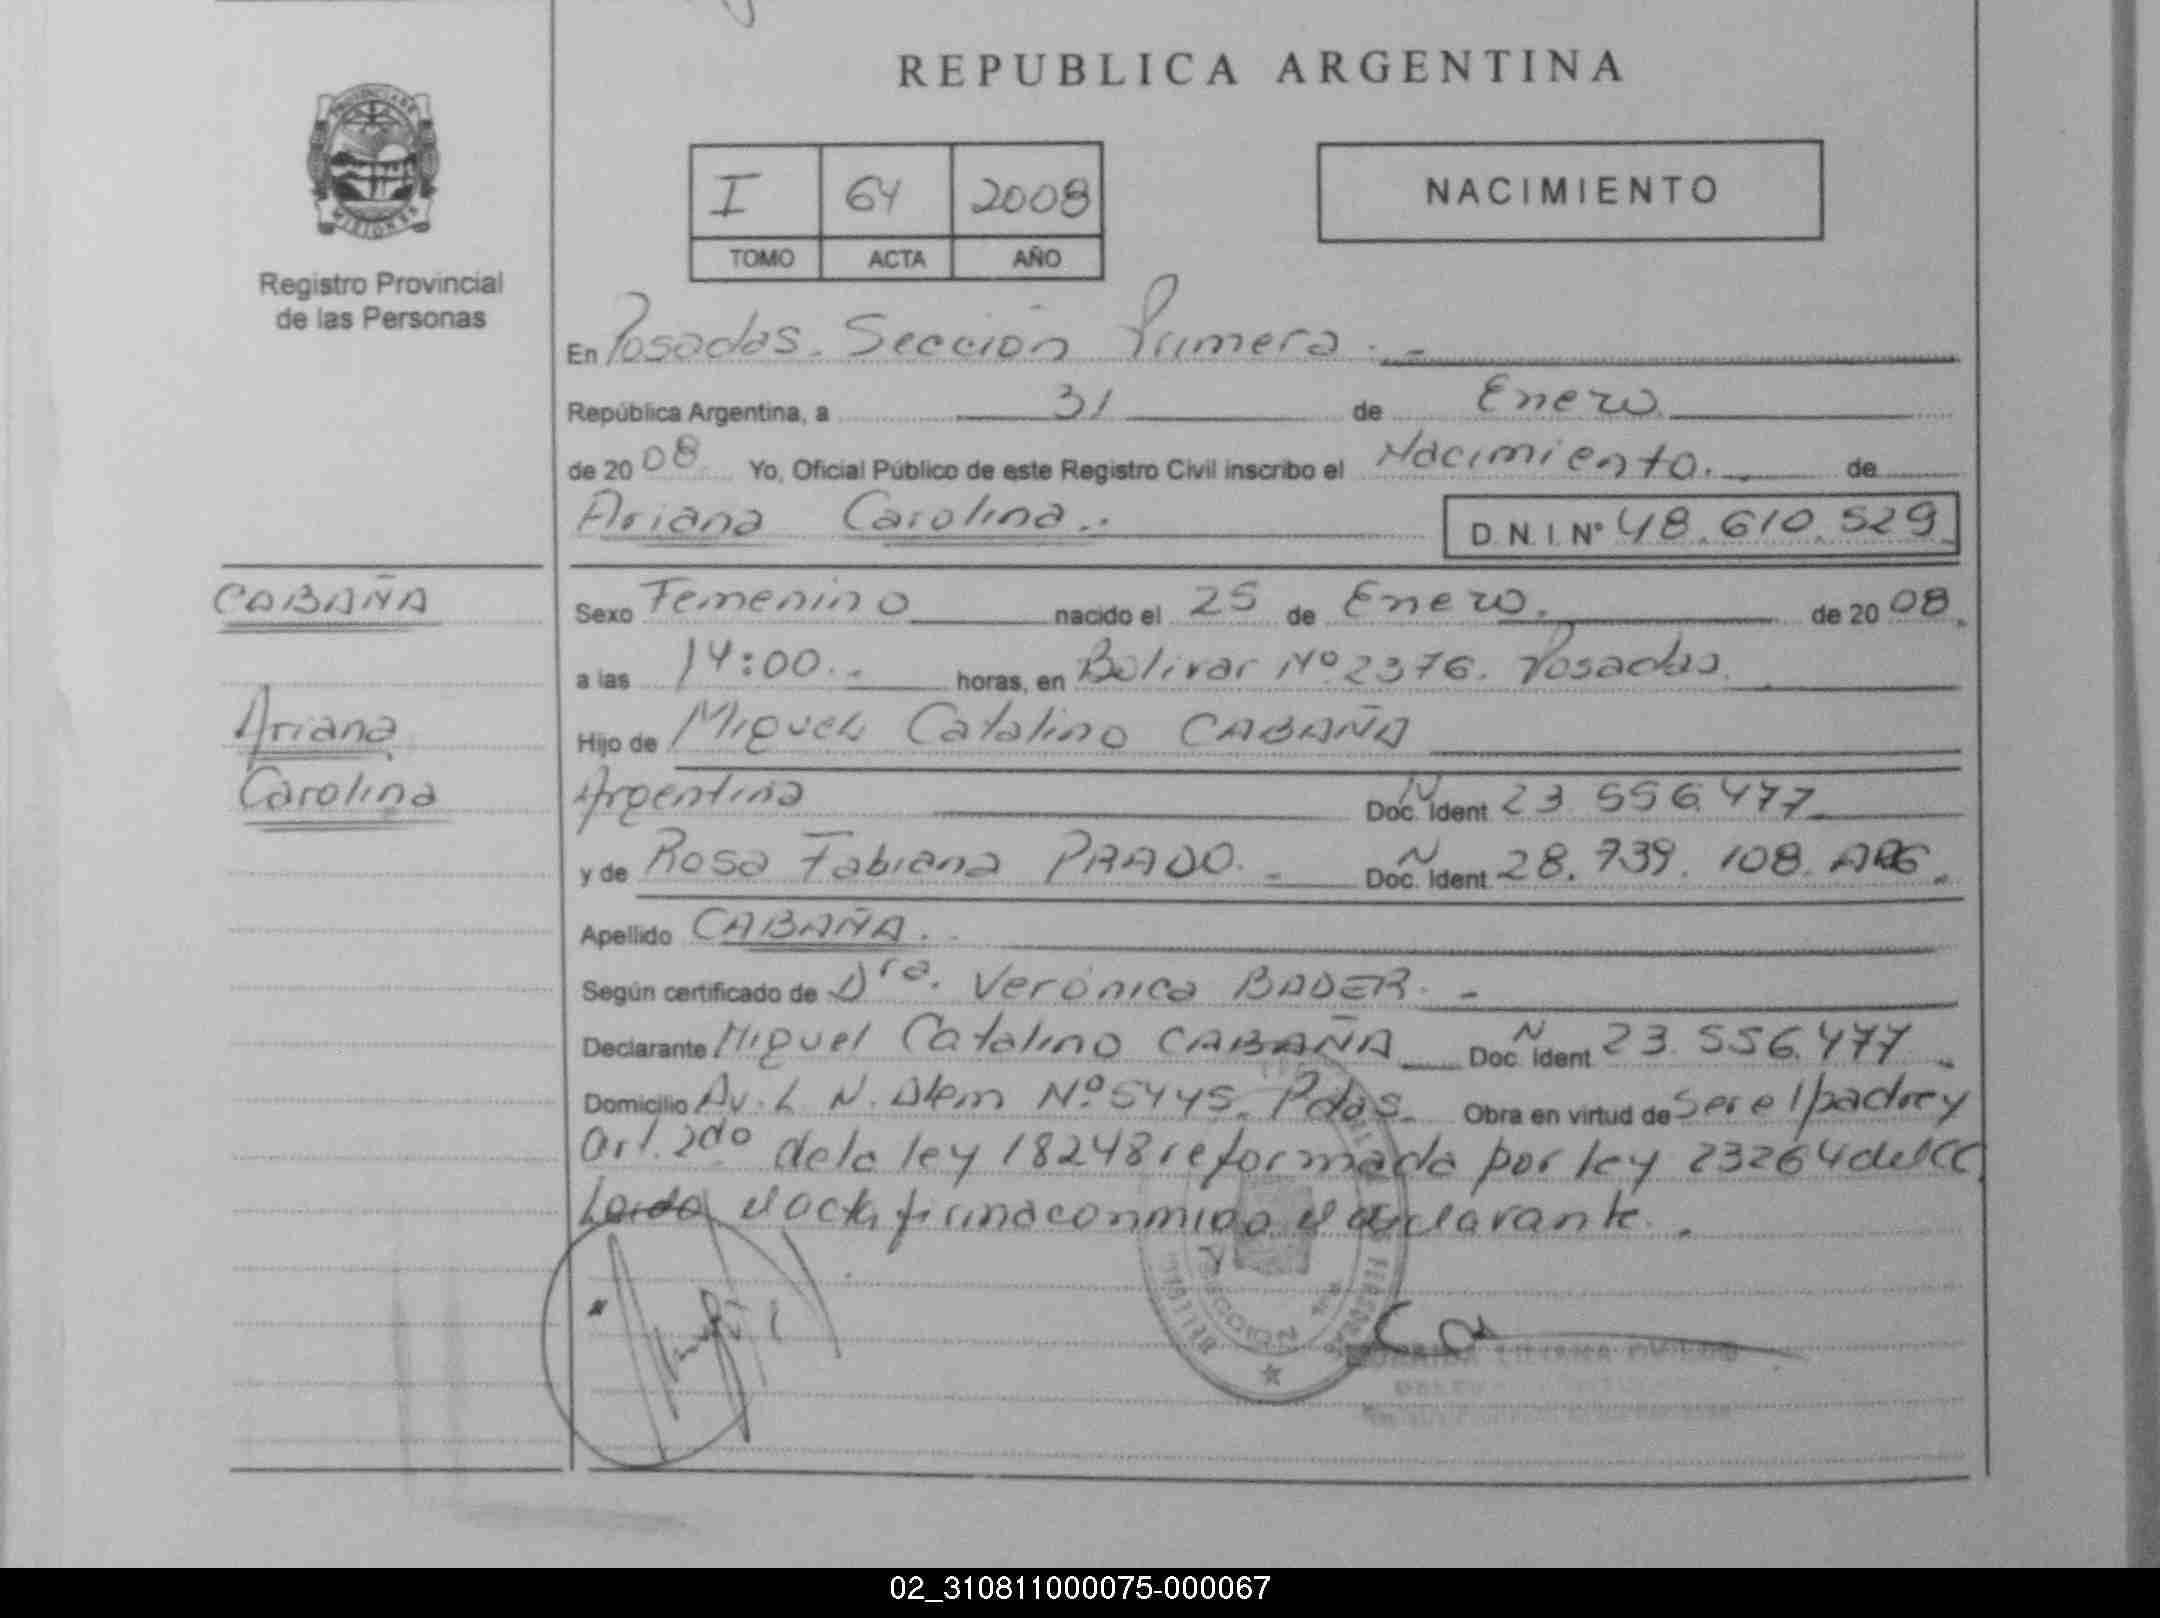 REPUBLICA ARGENTINA
PROVINCIA DE
MISIONES
Registro Provincial
de las Personas
I 64 2008
TOMO ACTA AÑO
NACIMIENTO
En Posadas. Sección Primera.-
República Argentina, a 31 de Enero
de 2008 Yo, Oficial Público de este Registro Civil inscribo el Nacimiento. de
Ariana Carolina.. D.N.I. N° 48.610.529
CABAÑA
Ariana
Carolina
Sexo Femenino nacido el 25 de Enero. de 2008.
a las 14:00.. horas, en Bolivar N° 2376. Posadas.
Hijo de Miguel Catalino CABAÑA
Argentina Doc. Ident N 23.556.477
y de Rosa Fabiana PRADO.- Doc. Ident N 28.739.108. ARG.
Apellido CABAÑA..
Según certificado de Dra. Verónica BADER.-
Declarante Miguel Catalino CABAÑA Doc. Ident N 23.556.477.
Domicilio Av. L. N. Alem N° 5445. Pdas. Obra en virtud de Ser el padre y
Art. 2do de la ley 18248 reformada por ley 23264 del CC
Leida el acta firma conmigo el declarante.
LILIANA
02_310811000075-000067